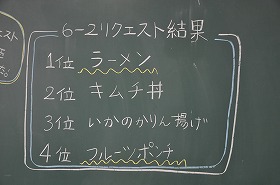 6-2リクエスト結果
1位 ラーメン
2位 キムチ丼
3位 いかのかりん揚げ
4位 フルーツポンチ